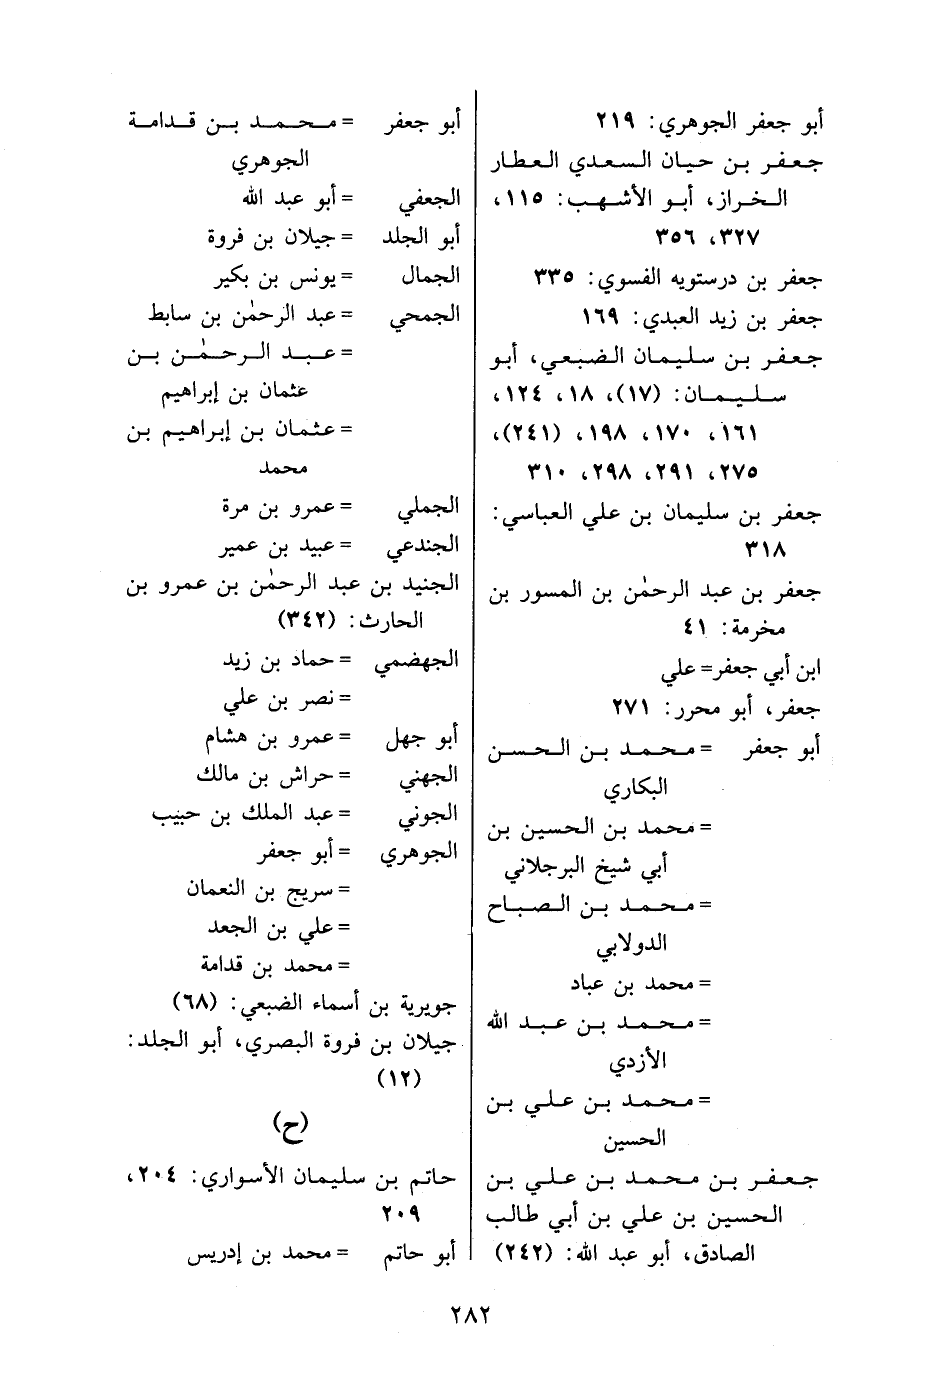 أبو جعفر الجوهري: ٢١٩
جعفر بن حيان السعدي العطار
الخراز، أبو الأشهب: ١١٥،
٣٢٧، ٣٥٦
جعفر بن درستويه الفسوي: ٣٣٥
جعفر بن زيد العبدي: ١٦٩
جعفر بن سليمان الضبعي، أبو
سليمان: (١٧)، ١٨، ١٢٤،
١٦١، ١٧٠، ١٩٨، (٢٤١)،
٢٧٥، ٢٩١، ٢٩٨، ٣١٠
جعفر بن سليمان بن علي العباسي:
٣١٨
جعفر بن عبد الرحمٰن بن المسور بن
مخرمة: ٤١
ابن أبي جعفر= علي
جعفر، أبو محرر: ٢٧١
أبو جعفر = محمد بن الحسن
البكاري
= محمد بن الحسين بن
أبي شيخ البرجلاني
= محمد بن الصباح
الدولابي
= محمد بن عباد
= محمد بن عبد الله
الأزدي
= محمد بن علي بن
الحسين
جعفر بن محمد بن علي بن
الحسين بن علي بن أبي طالب
الصادق، أبو عبد الله: (٢٤٢)
أبو جعفر = محمد بن قدامة
الجوهري
الجعفي = أبو عبد الله
أبو الجلد = جيلان بن فروة
الجمال = يونس بن بكير
الجمحي = عبد الرحمٰن بن سابط
= عبد الرحمٰن بن
عثمان بن إبراهيم
= عثمان بن إبراهيم بن
محمد
الجملي = عمرو بن مرة
الجندعي = عبيد بن عمير
الجنيد بن عبد الرحمٰن بن عمرو بن
الحارث: (٣٤٢)
الجهضمي = حماد بن زيد
= نصر بن علي
أبو جهل = عمرو بن هشام
الجهني = حراش بن مالك
الجوني = عبد الملك بن حبيب
الجوهري = أبو جعفر
= سريج بن النعمان
= علي بن الجعد
= محمد بن قدامة
جويرية بن أسماء الضبعي: (٦٨)
جيلان بن فروة البصري، أبو الجلد:
(١٢)
(ح)
حاتم بن سليمان الأسواري: ٢٠٤،
٢٠٩
أبو حاتم = محمد بن إدريس
٢٨٢